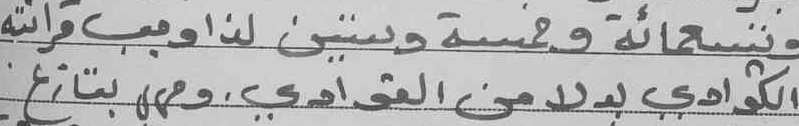 وتسعمائة وخمسة وستين لذا وجب قرائته
الكوادي بدلا من القوادي. وحرر بتازغ